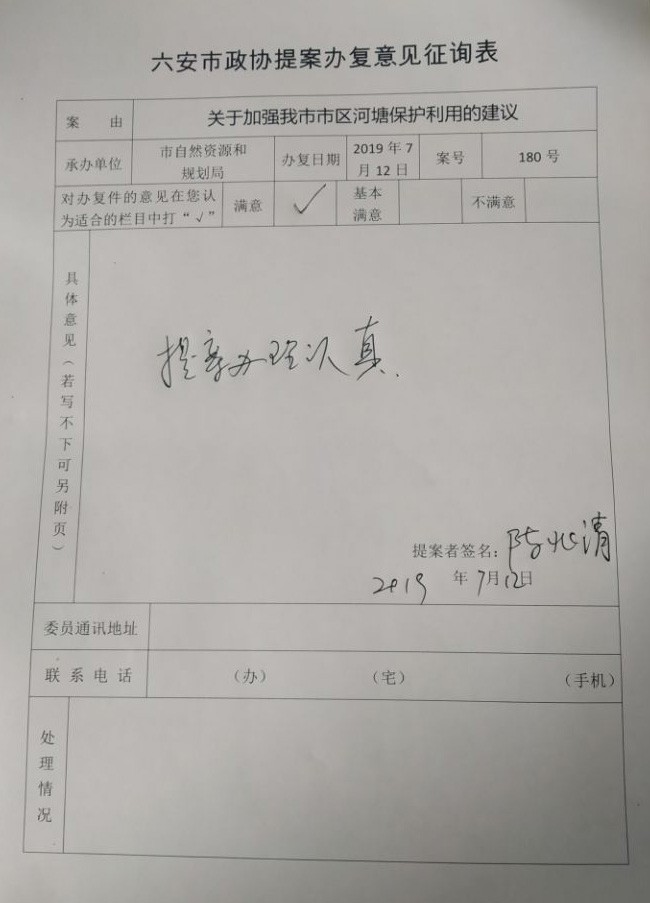 六安市政协提案办复意见征询表
案 由 关于加强我市市区河塘保护利用的建议
承办单位 市自然资源和规划局 办复日期 2019年7月12日 案号 180号
对办复件的意见在您认为适合的栏目中打“√” 满意 √ 基本满意 不满意
具体意见（若写不下可另附页）
提案办理认真.
提案者签名：陈兆清
2019 年7月12日
委员通讯地址
联系电话 （办） （宅） （手机）
处理情况